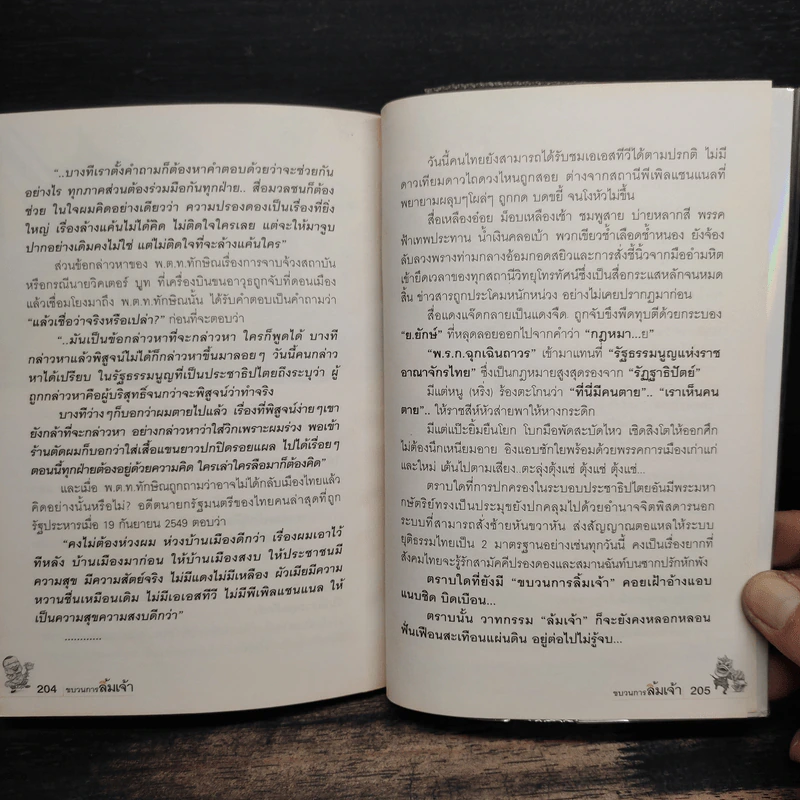 "..บางทีเราตั้งคำถามก็ต้องหาคำตอบด้วยว่าจะช่วยกัน
อย่างไร ทุกภาคส่วนต้องร่วมมือกันทุกฝ่าย.. สื่อมวลชนก็ต้อง
ช่วย ในใจผมคิดอย่างเดียวว่า ความปรองดองเป็นเรื่องที่ยิ่ง
ใหญ่ เรื่องล้างแค้นไม่ได้คิด ไม่ติดใจใครเลย แต่จะให้มาจูบ
ปากอย่างเดิมคงไม่ใช่ แต่ไม่ติดใจที่จะล้างแค้นใคร"
ส่วนข้อกล่าวหาของ พ.ต.ท.ทักษิณเรื่องการจาบจ้วงสถาบัน
หรือกรณีนายวิคเตอร์ บูท ที่เครื่องบินขนอาวุธถูกจับที่ดอนเมือง
แล้วเชื่อมโยงมาถึง พ.ต.ท.ทักษิณนั้น ได้รับคำตอบเป็นคำถามว่า
"แล้วเชื่อว่าจริงหรือเปล่า?" ก่อนที่จะตอบว่า
"..มันเป็นข้อกล่าวหาที่จะกล่าวหา ใครก็พูดได้ บางที
กล่าวหาแล้วพิสูจน์ไม่ได้ก็กล่าวหาขึ้นมาลอยๆ วันนี้คนกล่าว
หาได้เปรียบ ในรัฐธรรมนูญที่เป็นประชาธิปไตยถึงระบุว่า ผู้
ถูกกล่าวหาคือผู้บริสุทธิ์จนกว่าจะพิสูจน์ว่าทำจริง
บางทีว่างๆก็บอกว่าผมตายไปแล้ว เรื่องที่พิสูจน์ง่ายๆเขา
ยังกล้าที่จะกล่าวหา อย่างกล่าวหาว่าใส่วิกเพราะผมร่วง พอเข้า
ร้านตัดผมก็บอกว่าใส่เสื้อแขนยาวปกปิดรอยแผล ไปได้เรื่อยๆ
ตอนนี้ทุกฝ่ายต้องอยู่ด้วยความคิด ใครเล่าใครลือมาก็ต้องคิด"
และเมื่อ พ.ต.ท.ทักษิณถูกถามว่าอาจไม่ได้กลับเมืองไทยแล้ว
คิดอย่างนั้นหรือไม่? อดีตนายกรัฐมนตรีของไทยคนล่าสุดที่ถูก
รัฐประหารเมื่อ 19 กันยายน 2549 ตอบว่า
"คงไม่ต้องห่วงผม ห่วงบ้านเมืองดีกว่า เรื่องผมเอาไว้
ทีหลัง บ้านเมืองมาก่อน ให้บ้านเมืองสงบ ให้ประชาชนมี
ความสุข มีความสัตย์จริง ไม่มีแดงไม่มีเหลือง ผัวเมียมีความ
หวานชื่นเหมือนเดิม ไม่มีเอเอสทีวี ไม่มีพีเพิลแชนแนล ให้
เป็นความสุขความสงบดีกว่า"
............
204 ขบวนการล้มเจ้า
วันนี้คนไทยยังสามารถได้รับชมเอเอสทีวีได้ตามปรกติ ไม่มี
ดาวเทียมดาวไถดวงไหนถูกสอย ต่างจากสถานีพีเพิลแชนแนลที่
พยายามผลุบๆโผล่ๆ ถูกกด บดขยี้ จนโงหัวไม่ขึ้น
สื่อเหลืองอ๋อย ม็อบเหลืองเช้า ชมพูสาย บ่ายหลากสี พรรค
ฟ้าเทพประทาน น้ำเงินคลอเบ้า พวกเขียวช้ำเลือดช้ำหนอง ยังจ้อง
ลับลวงพรางท่ามกลางอ้อมกอดสยิวและการสั่งชี้นิ้วจากมืออำมหิต
เข้ายึดเวลาของทุกสถานีวิทยุโทรทัศน์ซึ่งเป็นสื่อกระแสหลักจนหมด
สิ้น ข่าวสารถูกประโคมหนักหน่วง อย่างไม่เคยปรากฏมาก่อน
สื่อแดงแจ๊ดกลายเป็นแดงจืด ถูกจับขึงพืดทุบตีด้วยกระบอง
"ย.ยักษ์" ที่หลุดลอยออกไปจากคำว่า "กฎหมา...ย"
"พ.ร.ก.ฉุกเฉินถาวร" เข้ามาแทนที่ "รัฐธรรมนูญแห่งราช
อาณาจักรไทย" ซึ่งเป็นกฎหมายสูงสุดรองจาก "รัฏฐาธิปัตย์"
มีแต่หนู (หริ่ง) ร้องตะโกนว่า "ที่นี่มีคนตาย".. "เราเห็นคน
ตาย".. ให้ราชสีห์หัวส่ายพาให้หางกระดิก
มีแต่แป๊ะยิ้มยืนโยก โบกมือพัดสะบัดไหว เชิดสิงโตให้ออกศึก
ไม่ต้องนึกเหนียมอาย อิงแอบชักใยพร้อมด้วยพรรคการเมืองเก่าแก่
และใหม่ เต้นไปตามเสียง..ตะลุ่งตุ้งแช่ ตุ้งแช่ ตุ้งแช่...
ตราบใดที่การปกครองในระบอบประชาธิปไตยอันมีพระมหา
กษัตริย์ทรงเป็นประมุขยังปกคลุมไปด้วยอำนาจจิตพิสดารนอก
ระบบที่สามารถสั่งซ้ายหันขวาหัน ส่งสัญญาณตอแหลให้ระบบ
ยุติธรรมไทยเป็น 2 มาตรฐานอย่างเช่นทุกวันนี้ คงเป็นเรื่องยากที่
สังคมไทยจะรู้รักสามัคคีปรองดองและสมานฉันท์บนซากปรักหักพัง
ตราบใดที่ยังมี "ขบวนการลิ้มเจ้า" คอยเฝ้าอ้างแอบ
แนบชิด บิดเบือน...
ตราบนั้น วาทกรรม "ล้มเจ้า" ก็จะยังคงหลอกหลอน
ฟั่นเฟือนสะเทือนแผ่นดิน อยู่ต่อไปไม่รู้จบ...
ขบวนการล้มเจ้า 205